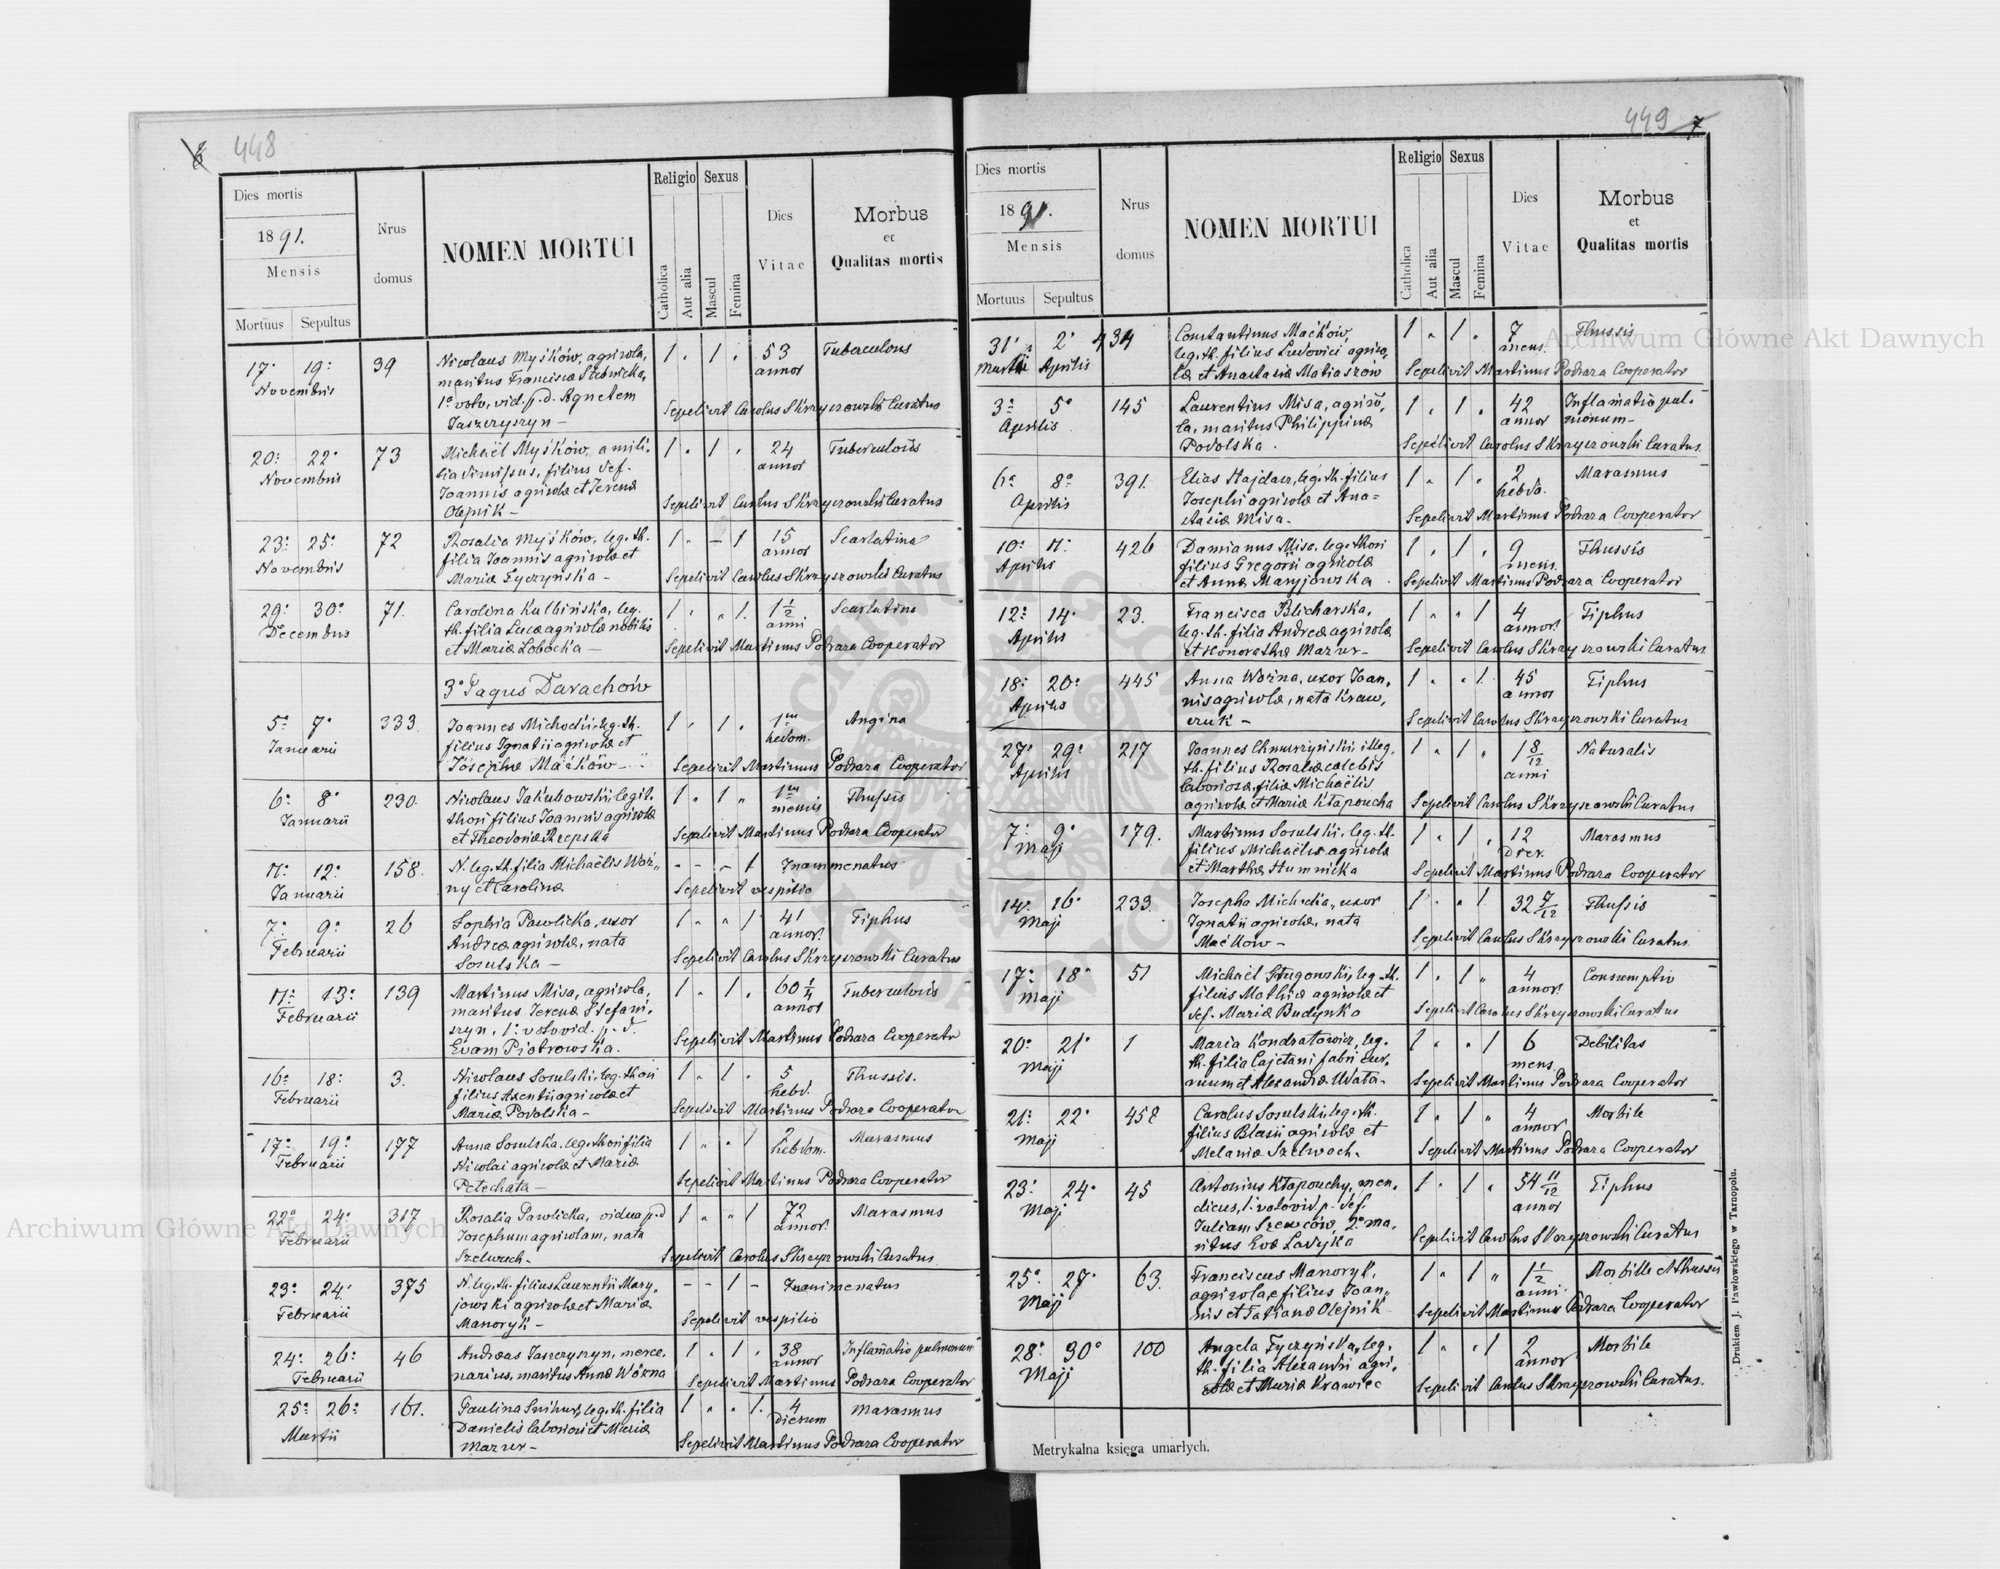 448
Dies mortis
1891.
Mensis
Mortuus Sepultus
Nrus
domus
NOMEN MORTUI
Religio
Catholica
Aut alia
Sexus
Mascul
Femina
Dies
Vitae
Morbus
et
Qualitas mortis
17. 19. 39 Nicolaus Myśków, agricola, 1 " 1 " 53 Tuberculosis
Novembris maritus Franciscæ Stebnicka, annor
1º voto, vid. p. d. Agnetem Sepelivit Carolus Skrzyszowski Curatus
Taszczyszyn –
20. 22. 73 Michaël Myśków, a mili- 1 " 1 " 24 Tuberculosis
Novembris tia dimissus, filius def. annor
Joannis agricolæ et Terenæ Sepelivit Carolus Skrzyszowski Curatus
Olejnik –
23. 25. 72 Rosalia Myśków, leg. th. 1 " – 1 15 Scarlatina
Novembris filia Joannis agricolæ et annor
Mariæ Łyczyńska – Sepelivit Carolus Skrzyszowski Curatus
29. 30. 71. Carolina Kulbińska, leg. 1 " " 1. 1 1/2 Scarlatina
Decembris th. filia Lucæ agricolæ nobilis anni
et Mariæ Łobocka – Sepelivit Martinus Podraza Cooperator
3º Pagus Darachów
5. 7. 333. Joannes Michocki, leg. th. 1 " 1 " 1 Angina
Januarii filius Ignatii agricolæ et hedom.
Josephæ Maćków – Sepelivit Martinus Podraza Cooperator
6. 8. 230. Nicolaus Jakubowski, legit. 1 " 1 " 1 Thussis
Januarii thori filius Joannis agricolæ mensis
et Theodoræ Rzepska Sepelivit Martinus Podraza Cooperator
11. 12. 158. N. leg. th. filia Michaëlis Woź- – – – 1 Inanimenatus
Januarii ny et Carolinæ Sepelivit vespilio
7. 9. 26 Sophia Pawlicka, uxor 1 " " 1 41 Tiphus
Februarii Andreæ agricolæ, nata annor.
Sosulska – Sepelivit Carolus Skrzyszowski Curatus
11. 13. 139 Martinus Misa, agricola, 1 " 1 " 60 1/4 Tuberculosis
Februarii maritus Terenæ Stefani- annor
szyn, 1. voto vid. p. d. Sepelivit Martinus Podraza Cooperator
Evam Piotrowska.
16. 18. 3. Nicolaus Sosulski, leg. thori 1 " 1 " 5 Thussis.
Februarii filius Axentii agricolæ et hebd.
Mariæ Podolska – Sepelivit Martinus Podraza Cooperator
17. 19. 177 Anna Sosulska, leg. thori filia 1 " " 1 2 Marasmus
Februarii Nicolai agricolæ et Mariæ hebdom.
Petechata – Sepelivit Martinus Podraza Cooperator
22. 24. 317 Rosalia Pawlicka, vidua p.d 1 " " 1 72 Marasmus
Februarii Josephum agricolam, nata annor.
Szelwach – Sepelivit Carolus Skrzyszowski Curatus
23. 24. 375 N. leg. th. filius Laurentii Mary- – – 1 – Inanimenatus
Februarii jowski agricolæ et Mariæ
Manoryk – Sepelivit vespilio
24. 26. 46 Andreas Taszczyszyn, merce- 1 " 1 " 38 Inflamatio pulmonum
Februarii narius, maritus Annæ Wożna annor Sepelivit Martinus Podraza Cooperator
25. 26. 161. Paulina Snihur, leg. th. filia 1 " " 1. 4 Marasmus
Martii Danielis laboriosi et Mariæ dierum
Mazur – Sepelivit Martinus Podraza Cooperator
449 7
Dies mortis
1891.
Mensis
Mortuus Sepultus
Nrus
domus
NOMEN MORTUI
Religio
Catholica
Aut alia
Sexus
Mascul
Femina
Dies
Vitae
Morbus
et
Qualitas mortis
31. 2. 434 Constantinus Maćków, 1 " 1 " 7 Thussis
Martii Aprilis leg. th. filius Ludovici agrico- mens.
læ et Anastasiæ Matiaszów Sepelivit Martinus Podraza Cooperator
3. 5. 145 Laurentius Misa, agrico- 1 " 1 " 42 Inflamatio pul-
Aprilis la, maritus Philippinæ annor monum –
Podolska. Sepelivit Carolus Skrzyszowski Curatus.
6. 8. 391. Elias Hajdacz, leg. th. filius 1 " 1 " 2 Marasmus
Aprilis Josephi agricolæ et Ana- hebdo.
stasiæ Misa. Sepelivit Martinus Podraza Cooperator
10. 11. 426 Damianus Misa, leg. thori 1 " 1 " 9 Thussis
Aprilis filius Gregorii agricolæ mens.
et Annæ Maryjowska. Sepelivit Martinus Podraza Cooperator
12. 14. 23. Francisca Blicharska, 1 " " 1 4 Tiphus
Aprilis leg. th. filia Andreæ agricolæ annor.
et Honorathæ Mazur – Sepelivit Carolus Skrzyszowski Curatus
18. 20. 445 Anna Woźna, uxor Joan- 1 " " 1. 45 Tiphus
Aprilis nis agricolæ, nata Kraw- annor
czuk – Sepelivit Carolus Skrzyszowski Curatus
27. 29. 217 Joannes Chmurzyński, illeg. 1 " 1 " 1 8/12 Naturalis
Aprilis th. filius Rosaliæ cælebis anni
laboriosæ, filiæ Michaëlis
agricolæ et Mariæ Kłapoucha Sepelivit Carolus Skrzyszowski Curatus
7. 9. 179. Martinus Sosulski, leg. th. 1 " 1 " 12 Marasmus
Maji filius Michaëlis agricolæ dier.
et Marthæ Humnicka Sepelivit Martinus Podraza Cooperator
14. 16. 233. Josepha Michocka, uxor 1 " " 1. 32 7/12 Thussis
Maji Ignatii agricolæ, nata
Maćków – Sepelivit Carolus Skrzyszowski Curatus.
17. 18. 51 Michaël Gługowski, leg. th. 1 " 1 " 4 Consumptio
Maji filius Mathiæ agricolæ et annor.
def. Mariæ Budynka Sepelivit Carolus Skrzyszowski Curatus
20. 21. 1 Maria Kondratowicz, leg. 1 " " 1 6 Debilitas
Maji th. filia Cajetani fabri cur- mens.
ruum et Alexandræ Uvata – Sepelivit Martinus Podraza Cooperator
21. 22. 458 Carolus Sosulski, leg. th. 1 " 1 " 4 Morbile
Maji filius Blasii agricolæ et annor
Melaniæ Szelwach. Sepelivit Martinus Podraza Cooperator
23. 24. 45 Antonius Kłapouchy, men- 1 " 1 " 54 11/12 Tiphus
Maji dicus, 1. voto vid. p. def. annor
Juliam Szewców, 2º ma-
ritus Evæ Ladyka Sepelivit Carolus Skrzyszowski Curatus
25. 27. 63. Franciscus Manoryk, 1 " 1 " 1 1/2 Morbille et thussis
Maji agricola, filius Joan- anni.
nis et Tatianæ Olejnik Sepelivit Martinus Podraza Cooperator
28. 30. 100 Angela Tyczyńska, leg. 1 " " 1 2 Morbile
Maji th. filia Alexandri agri- annor
colæ et Mariæ Krawiec Sepelivit Carolus Skrzyszowski Curatus.
Metrykalna księga umarłych.
Drukiem J. Pawlowskiego w Tarnopolu.
Archiwum Główne Akt Dawnych
Archiwum Główne Akt Dawnych